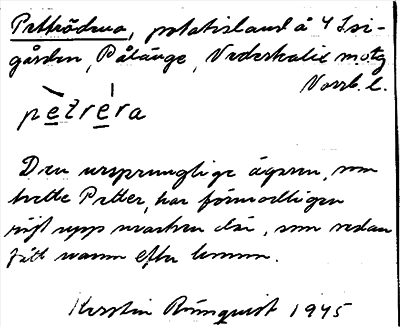 Pettrödena, potatisland å 4 Isi-
gården, Pålänge, Nederkalix
Norrb. l.
pètrera
Den ursprunglige ägaren, som
hette Petter, har förmodligen
röjt upp marken där, som sedan
fått namn efter honom.
Kerstin Rönnquist 1945